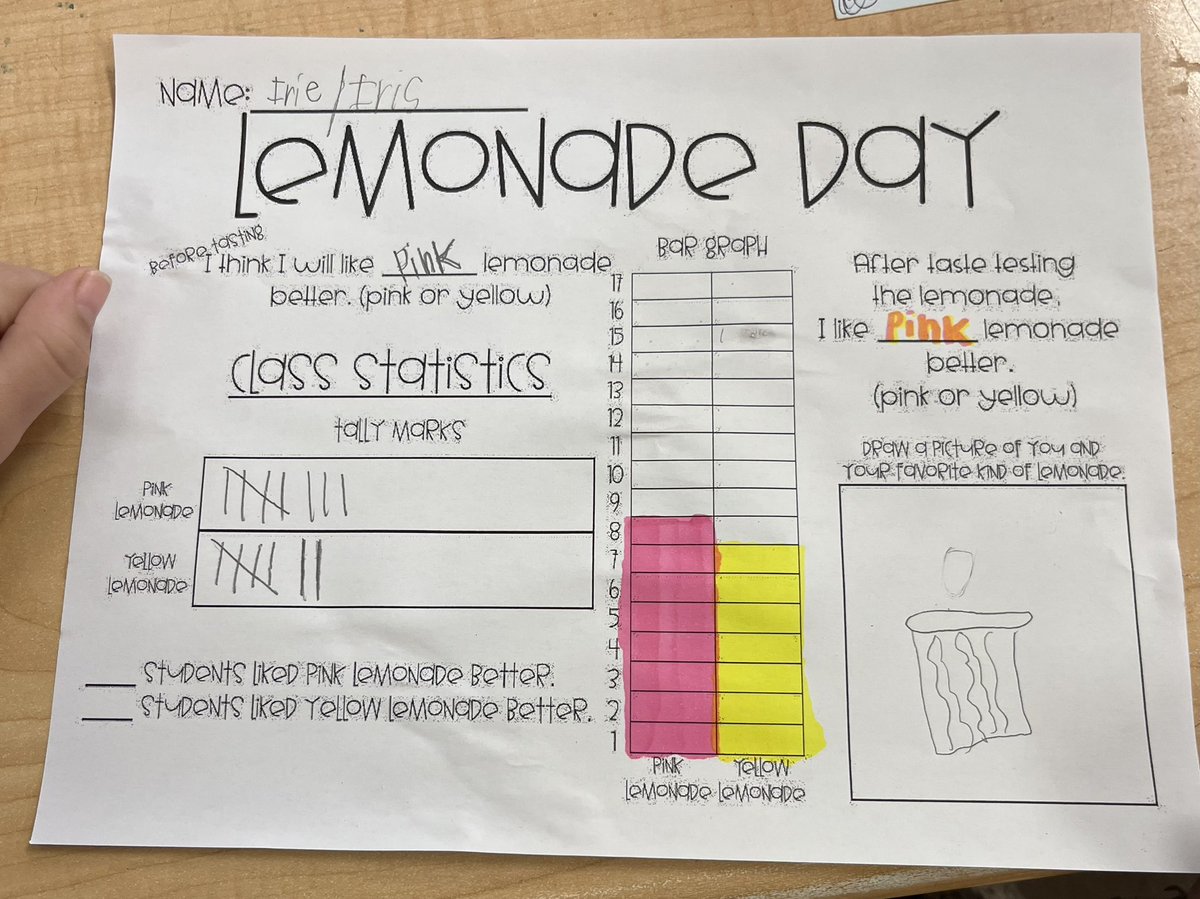 Name: Irie / Iris
Lemonade Day
Before tasting
I think I will like Pink lemonade
better. (pink or yellow)
Class Statistics
Tally Marks
Pink
Lemonade
Yellow
Lemonade
___ Students liked pink lemonade better.
___ Students liked yellow lemonade better.
Bar Graph
17
16
15
14
13
12
11
10
9
8
7
6
5
4
3
2
1
Pink
Lemonade
Yellow
Lemonade
After taste testing
the lemonade,
I like Pink lemonade
better.
(pink or yellow)
Draw a picture of you and
your favorite kind of lemonade.